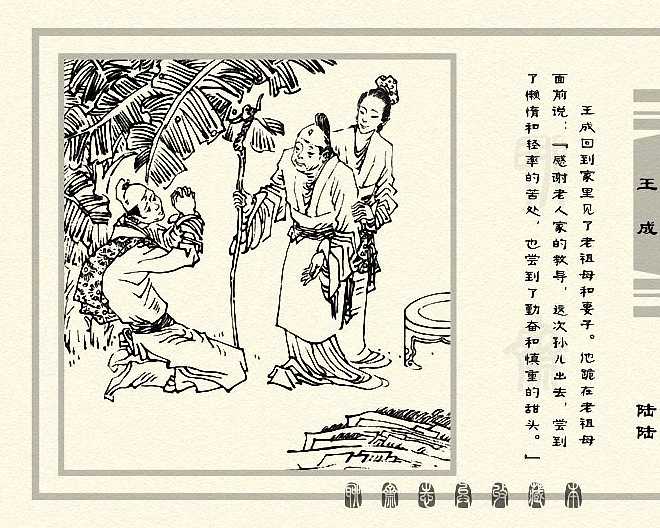 王成回到家里见了老祖母和妻子。他跪在老祖母
面前说：「感谢老人家的教导，这次孙儿出去，尝到
了懒惰和轻率的苦处，也尝到了勤奋和慎重的甜头。」
王成
陆陆